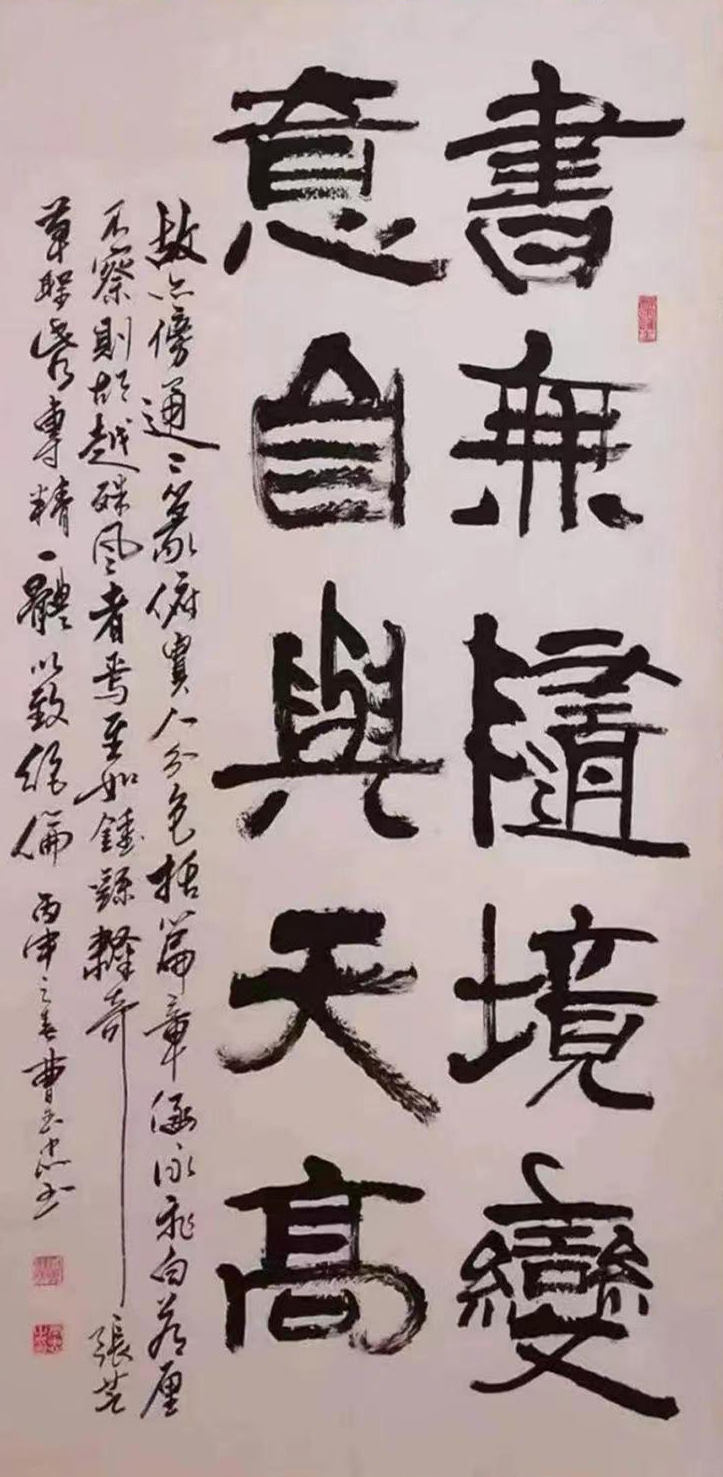 書無隨境變
意自與天高
故亦傍通二篆俯貫八分包括篇章涵泳飛白若厘
不察則胡越殊風者焉至如鍾繇隸奇張芝
草聖此乃專精一體以致絕倫 丙申之春曹玉忠书